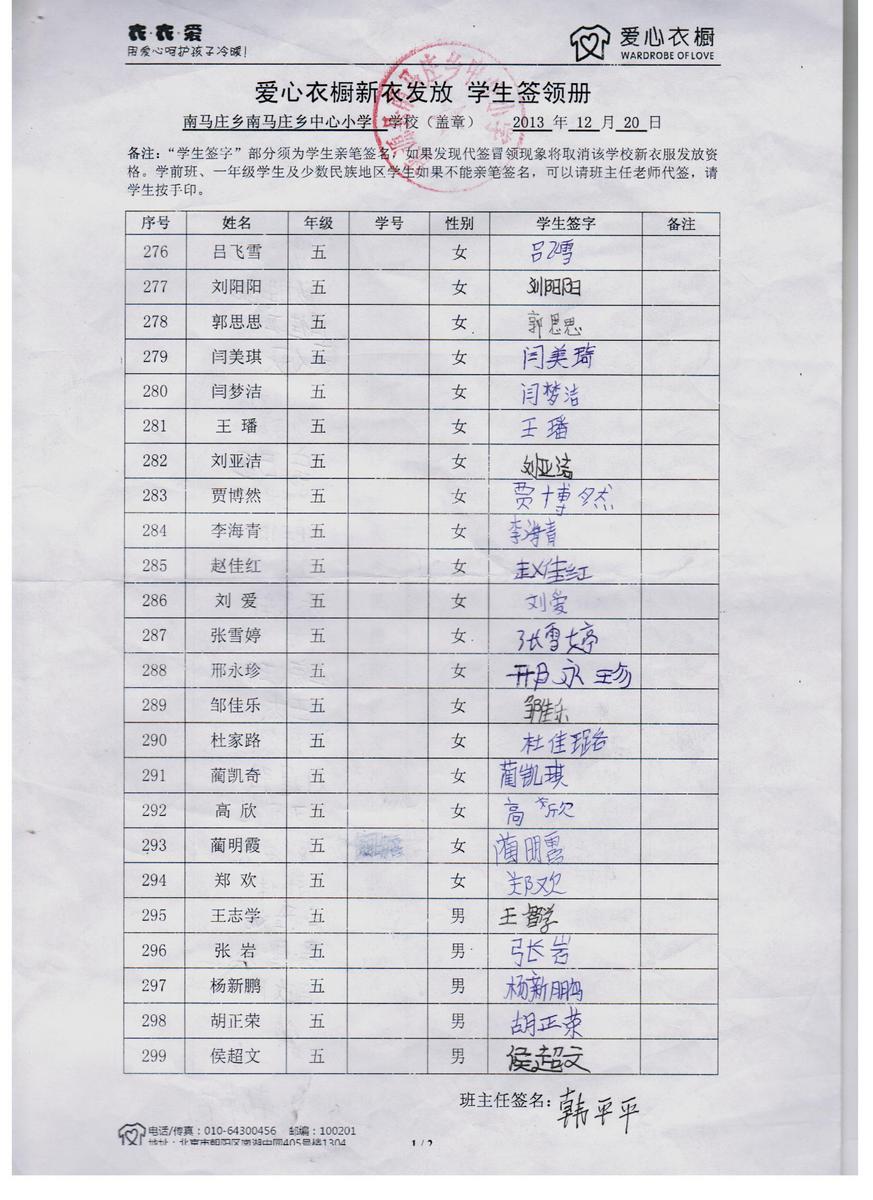 衣·衣·爱
用爱心呵护孩子冷暖!
爱心衣橱
WARDROBE OF LOVE
爱心衣橱新衣发放 学生签领册
南马庄乡南马庄乡中心小学 学校（盖章） 2013 年 12 月 20 日
备注：“学生签字”部分须为学生亲笔签名，如果发现代签冒领现象将取消该学校新衣服发放资
格。学前班、一年级学生及少数民族地区学生如果不能亲笔签名，可以请班主任老师代签，请
学生按手印。
序号 姓名 年级 学号 性别 学生签字 备注
276 吕飞雪 五 女 吕飞雪
277 刘阳阳 五 女 刘阳阳
278 郭思思 五 女 郭思思
279 闫美琪 五 女 闫美琦
280 闫梦洁 五 女 闫梦洁
281 王 璠 五 女 王璠
282 刘亚洁 五 女 刘亚洁
283 贾博然 五 女 贾博然
284 李海青 五 女 李海青
285 赵佳红 五 女 赵佳红
286 刘 爱 五 女 刘爱
287 张雪婷 五 女 张雪婷
288 邢永珍 五 女 邢永珍
289 邹佳乐 五 女 邹佳乐
290 杜家路 五 女 杜佳璐
291 蔺凯奇 五 女 蔺凯琪
292 高 欣 五 女 高欣
293 蔺明霞 五 女 蔺明霞
294 郑 欢 五 女 郑欢
295 王志学 五 男 王智学
296 张 岩 五 男 张岩
297 杨新鹏 五 男 杨新鹏
298 胡正荣 五 男 胡正荣
299 侯超文 五 男 侯超文
班主任签名：韩平平
电话/传真：010-64300456 邮编：100201
地址：北京市朝阳区南湖中园405号楼1304
1 / 2